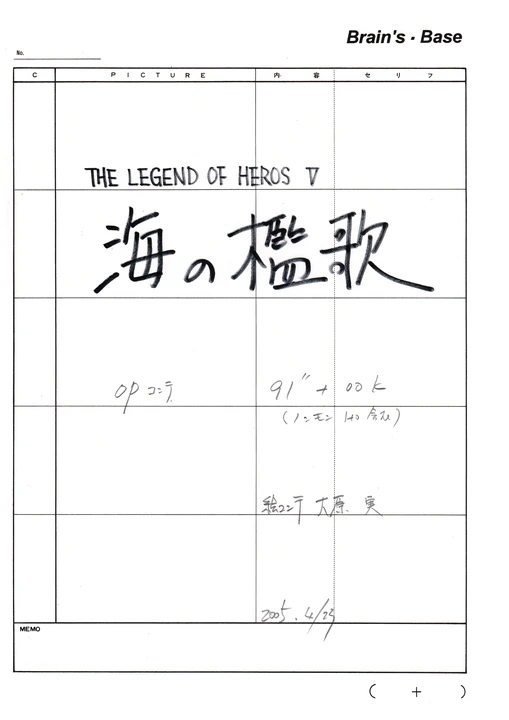 Brain's・Base
No.
C PICTURE 内容 セリフ
THE LEGEND OF HEROS Ⅴ
海の檻歌
OPコンテ 91″+00K
絵コンテ 大原 実
2005.4/23
MEMO
( + )